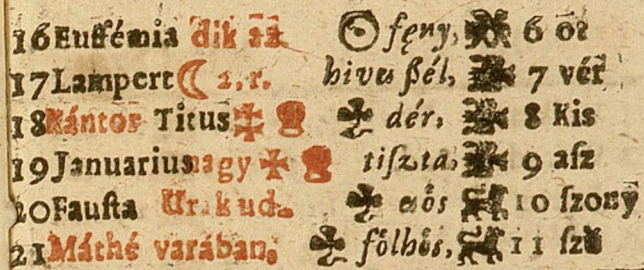 16 Euffémia dik ☉ fęny, 6
17 Lampert ☾ 2. r. hives ßél, 7 vér
18 Kántor Titus ✠ ♣ dér, 8 Kis
19 Januarius nagy ✠ tiſzta, 9 aſz
20 Fauſta Ur. k ud. ♣ eös 10 ſzony
21 Máthé varában. ♣ fölhös, 11 ſzü